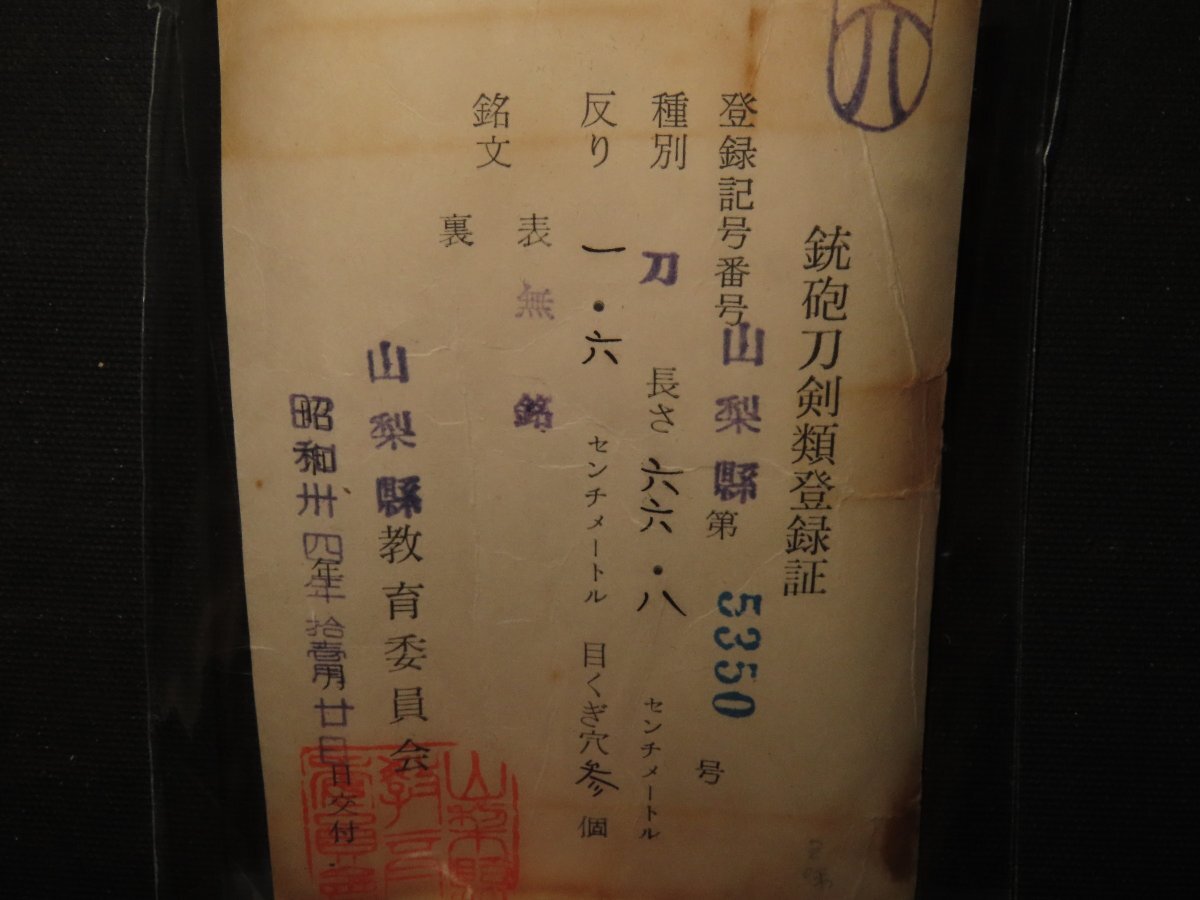 銃砲刀剣類登録証
登録記号番号 山梨縣 第 5350 号
種別 刀 長さ 六六・八 センチメートル
反り 一・六 センチメートル 目くぎ穴 参 個
銘文 表 無銘
裏
山梨縣教育委員会
昭和卅四年年拾壹月廿日日交付